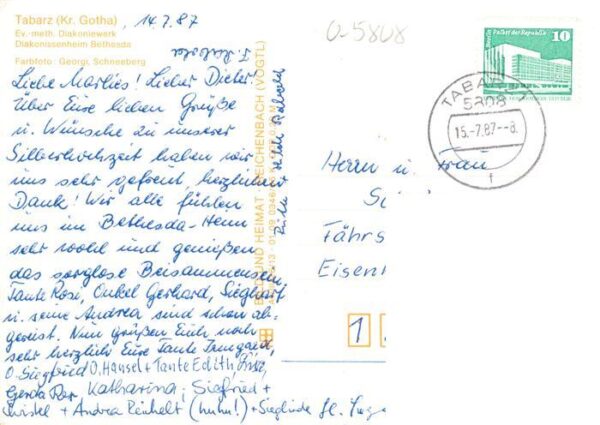 Tabarz (Kr. Gotha) 14.7.87
Ev.-meth. Diakoniewerk
Diakonissenheim Bethesda
Farbfoto: Georgi, Schneeberg
Liebe Marlies! Lieber Dieter!
Über Eure lieben Grüße
u. Wünsche zu unserer
Silberhochzeit haben wir
uns sehr gefreut herzlichen
Dank! Wir alle fühlen
uns im Bethesda-Heim
sehr wohl und genießen
das sorglose Beisammensein
Tante Rosi, Onkel Gerhard, Sieghart
u. seine Andrea sind schon ab-
gereist. Nun grüßen Euch noch
sehr herzlich Eure Tante Irmgard,
O. Siegfried O. Hansel + Tante Edith
Gerda Katharina; Siegfried +
+ Andrea Reinhelt (huhu!) + Sieglinde
BILD UND HEIMAT REICHENBACH (VOGTL)
0-5808
Berlin, Palast der Republik
10
DDR
TABARZ 1
5808
15.-7.87--8.
f
Herrn u. Frau
Fährs
Eisen
1